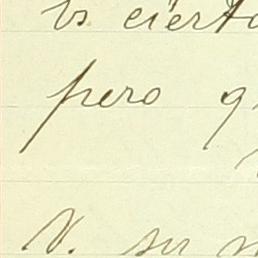 es cierto
pero q
V. su